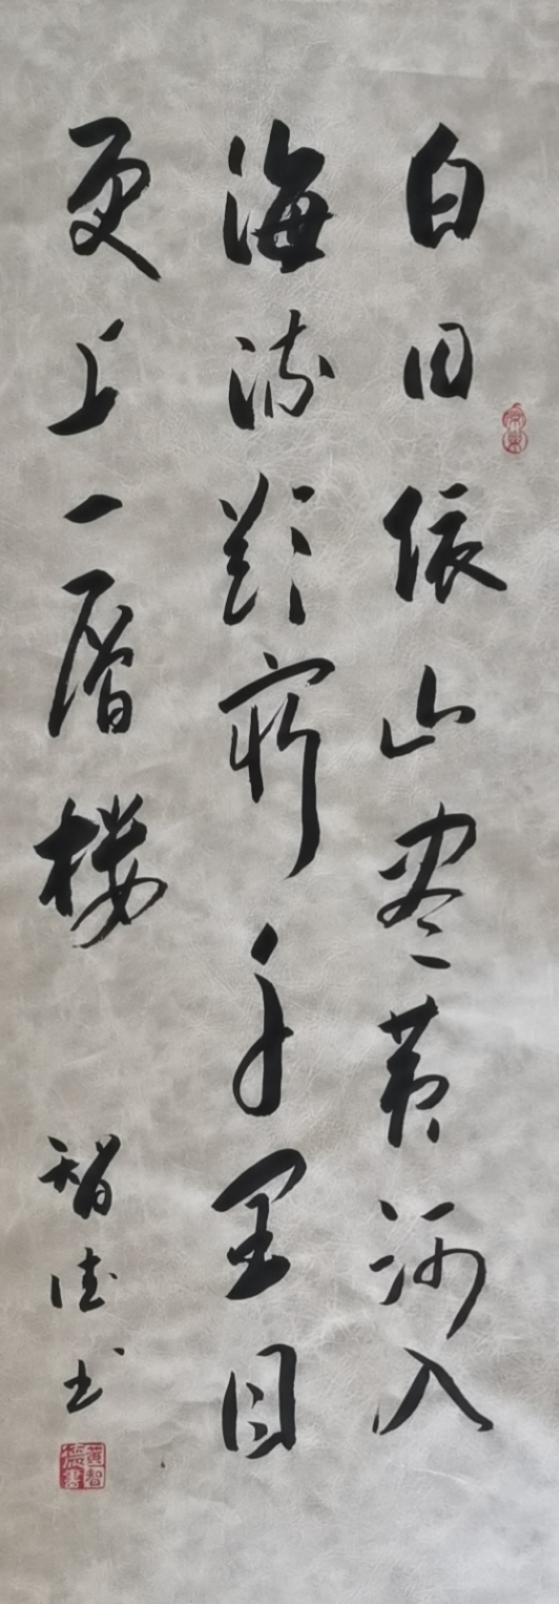 白日依山尽黄河入
海流欲穷千里目
更上一层楼
智德书